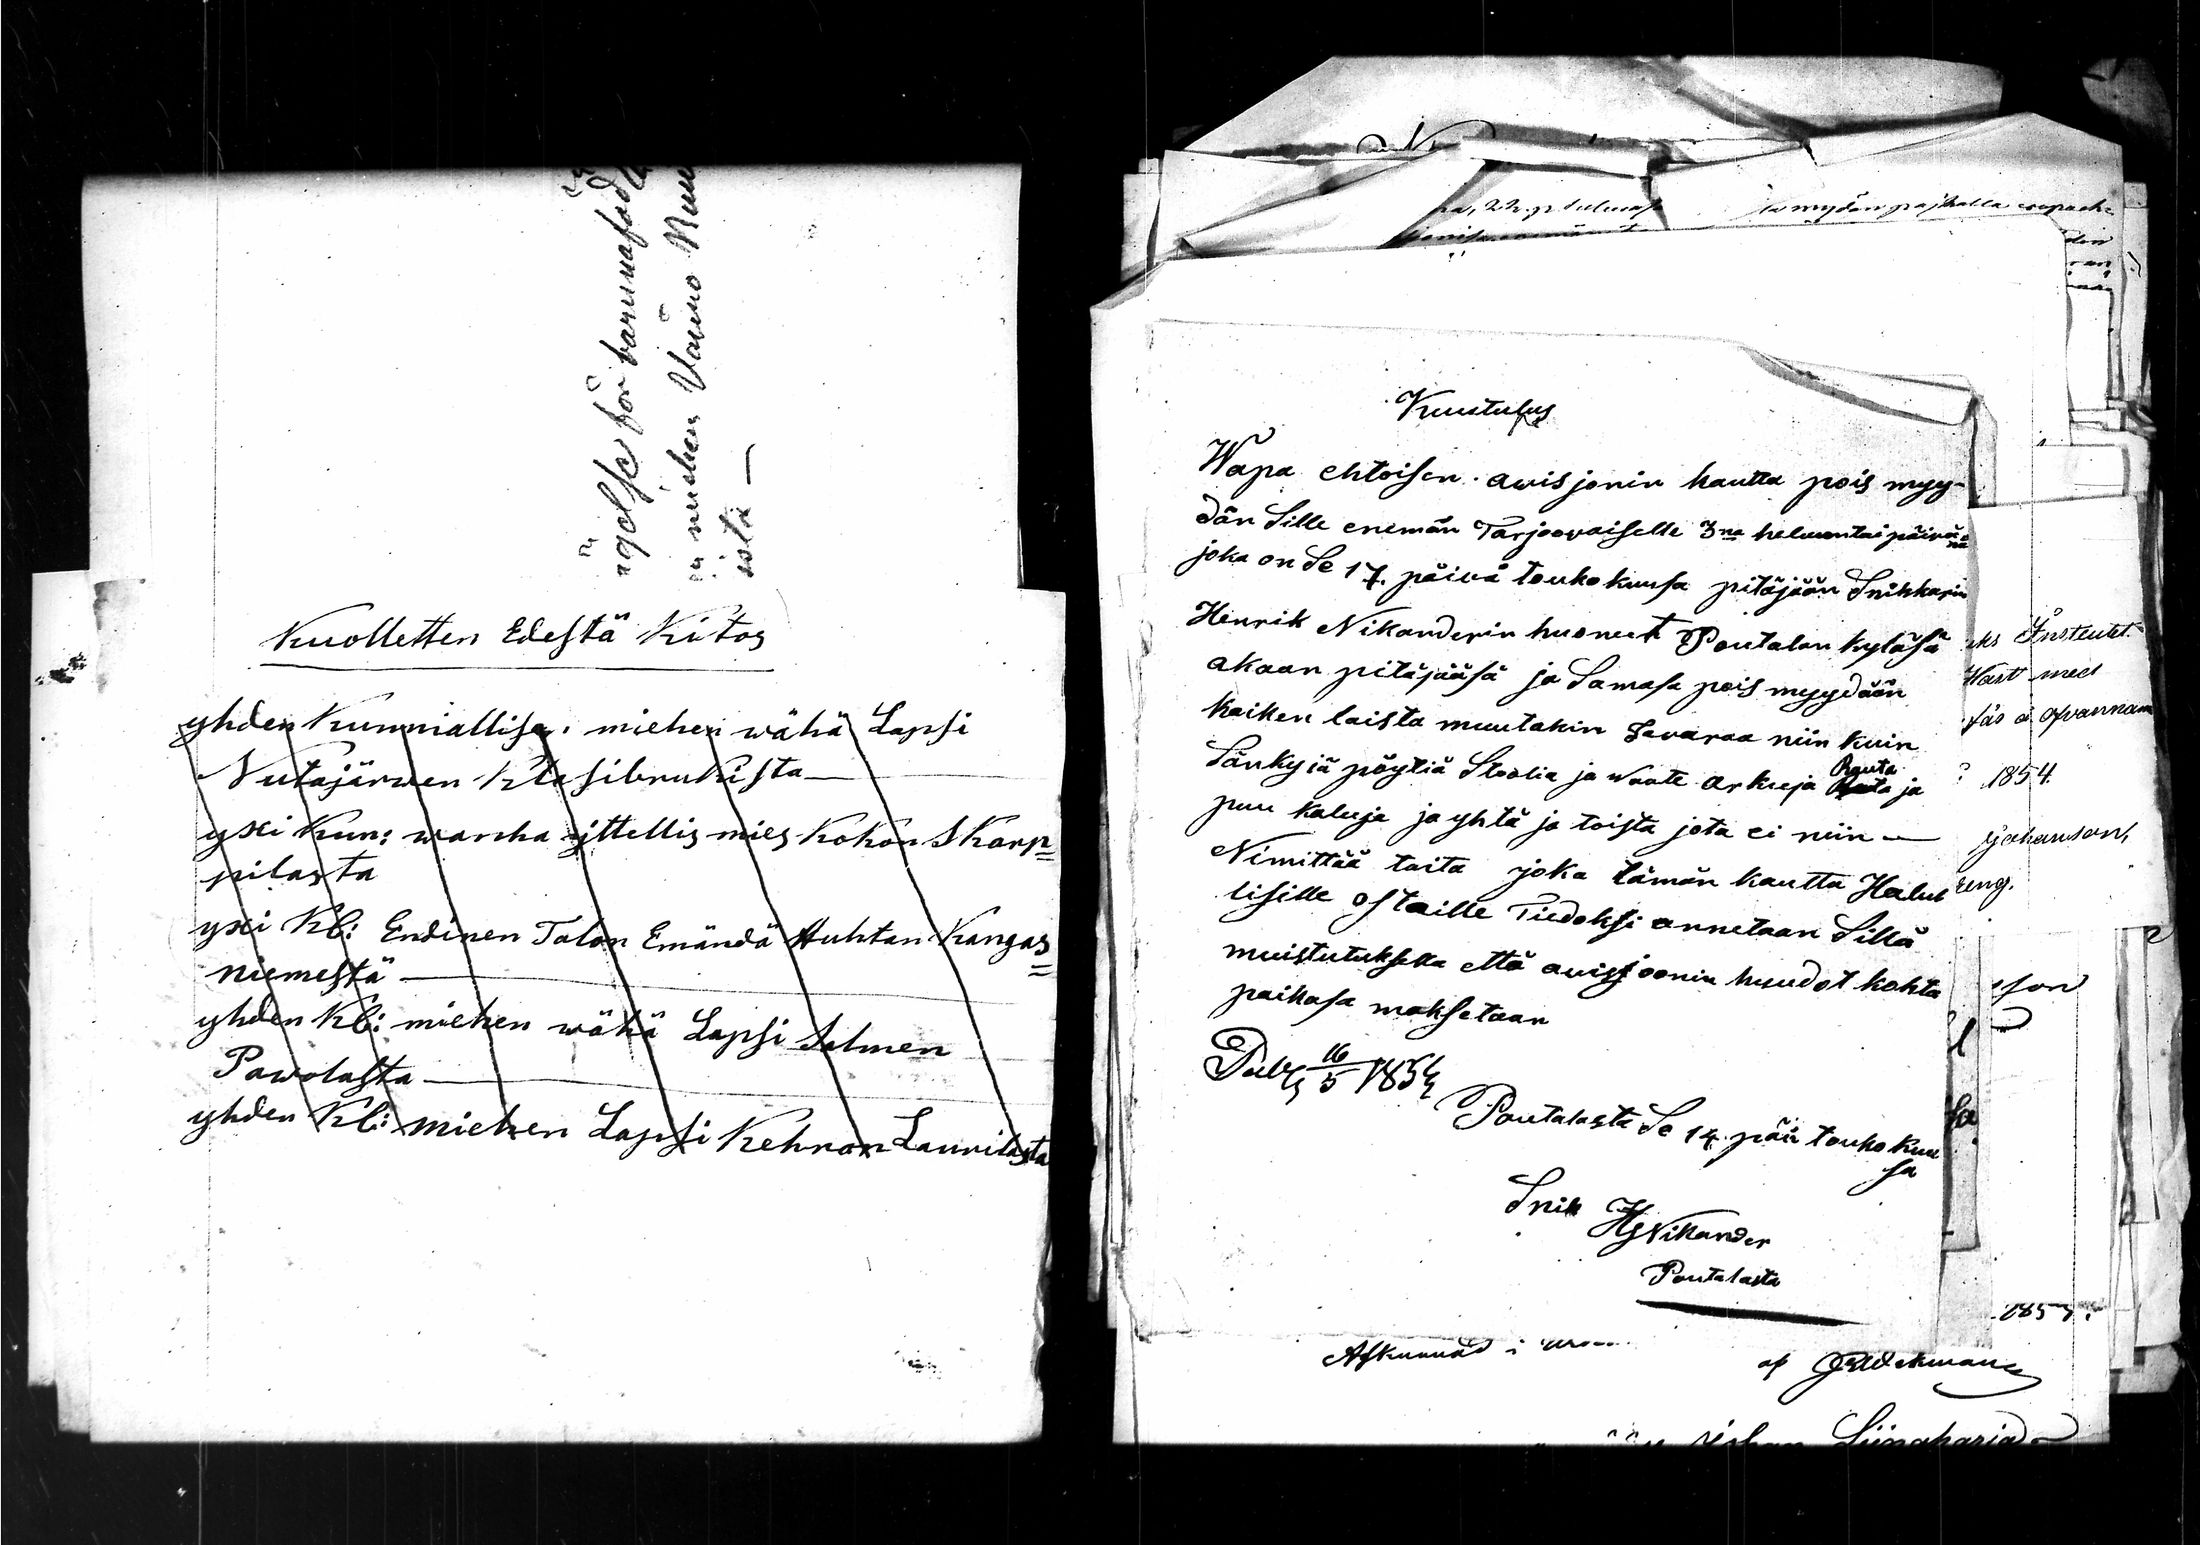 för barnnaföd
miehen Väinö
istä —
Kuolletten Edestä Kitos
yhden Kunniallise: miehen wähä Lapsi
Nutajärwen Klasibrukista —
yxi Kun: wanha yttellis mies Kokon Skarp=
pilasta
yxi Kl: Endinen Talon Emändä Huhtan Kangas=
niemestä —
yhden Kl: miehen wähä Lapsi Salmen
Pawolasta —
yhden Kl: miehen Lapsi Kehron Laurilasta
ja myydän
Kuutulus
Wapa ehtoisen auisjonin kautta pois myy-
dän Sille enemän Tarjoovaiselle 3na heluontai päivänä
joka on Se 17. päivä toukokuusa pitäjään Snikkarin
Henrik Nikanderin huoneet Poutalan kyläsä
akaan pitäjääsä ja Samasa pois myydään
kaiken laista muutakin Tavaraa niin kuin
Sänkyiä pöytiä Stoolia ja waate arkuja Rauta ja
puu kaluja ja yhtä ja toista jota ei niin —
Nimittää taita joka tämän kautta Halul
lisille ostaille Tiedoksi annetaan Sillä
muistutuksella että auisjoonin huudot kohta
paikasa maksetaan
Publ 16/5 1854
Poutalasta Se 14. päi toukokuu
sa
Snik HNikander
Poutalasta
Wast med
1854.
Johanson,
son
sa
1857.
Afkunnad i
af
Johan Siinaharia